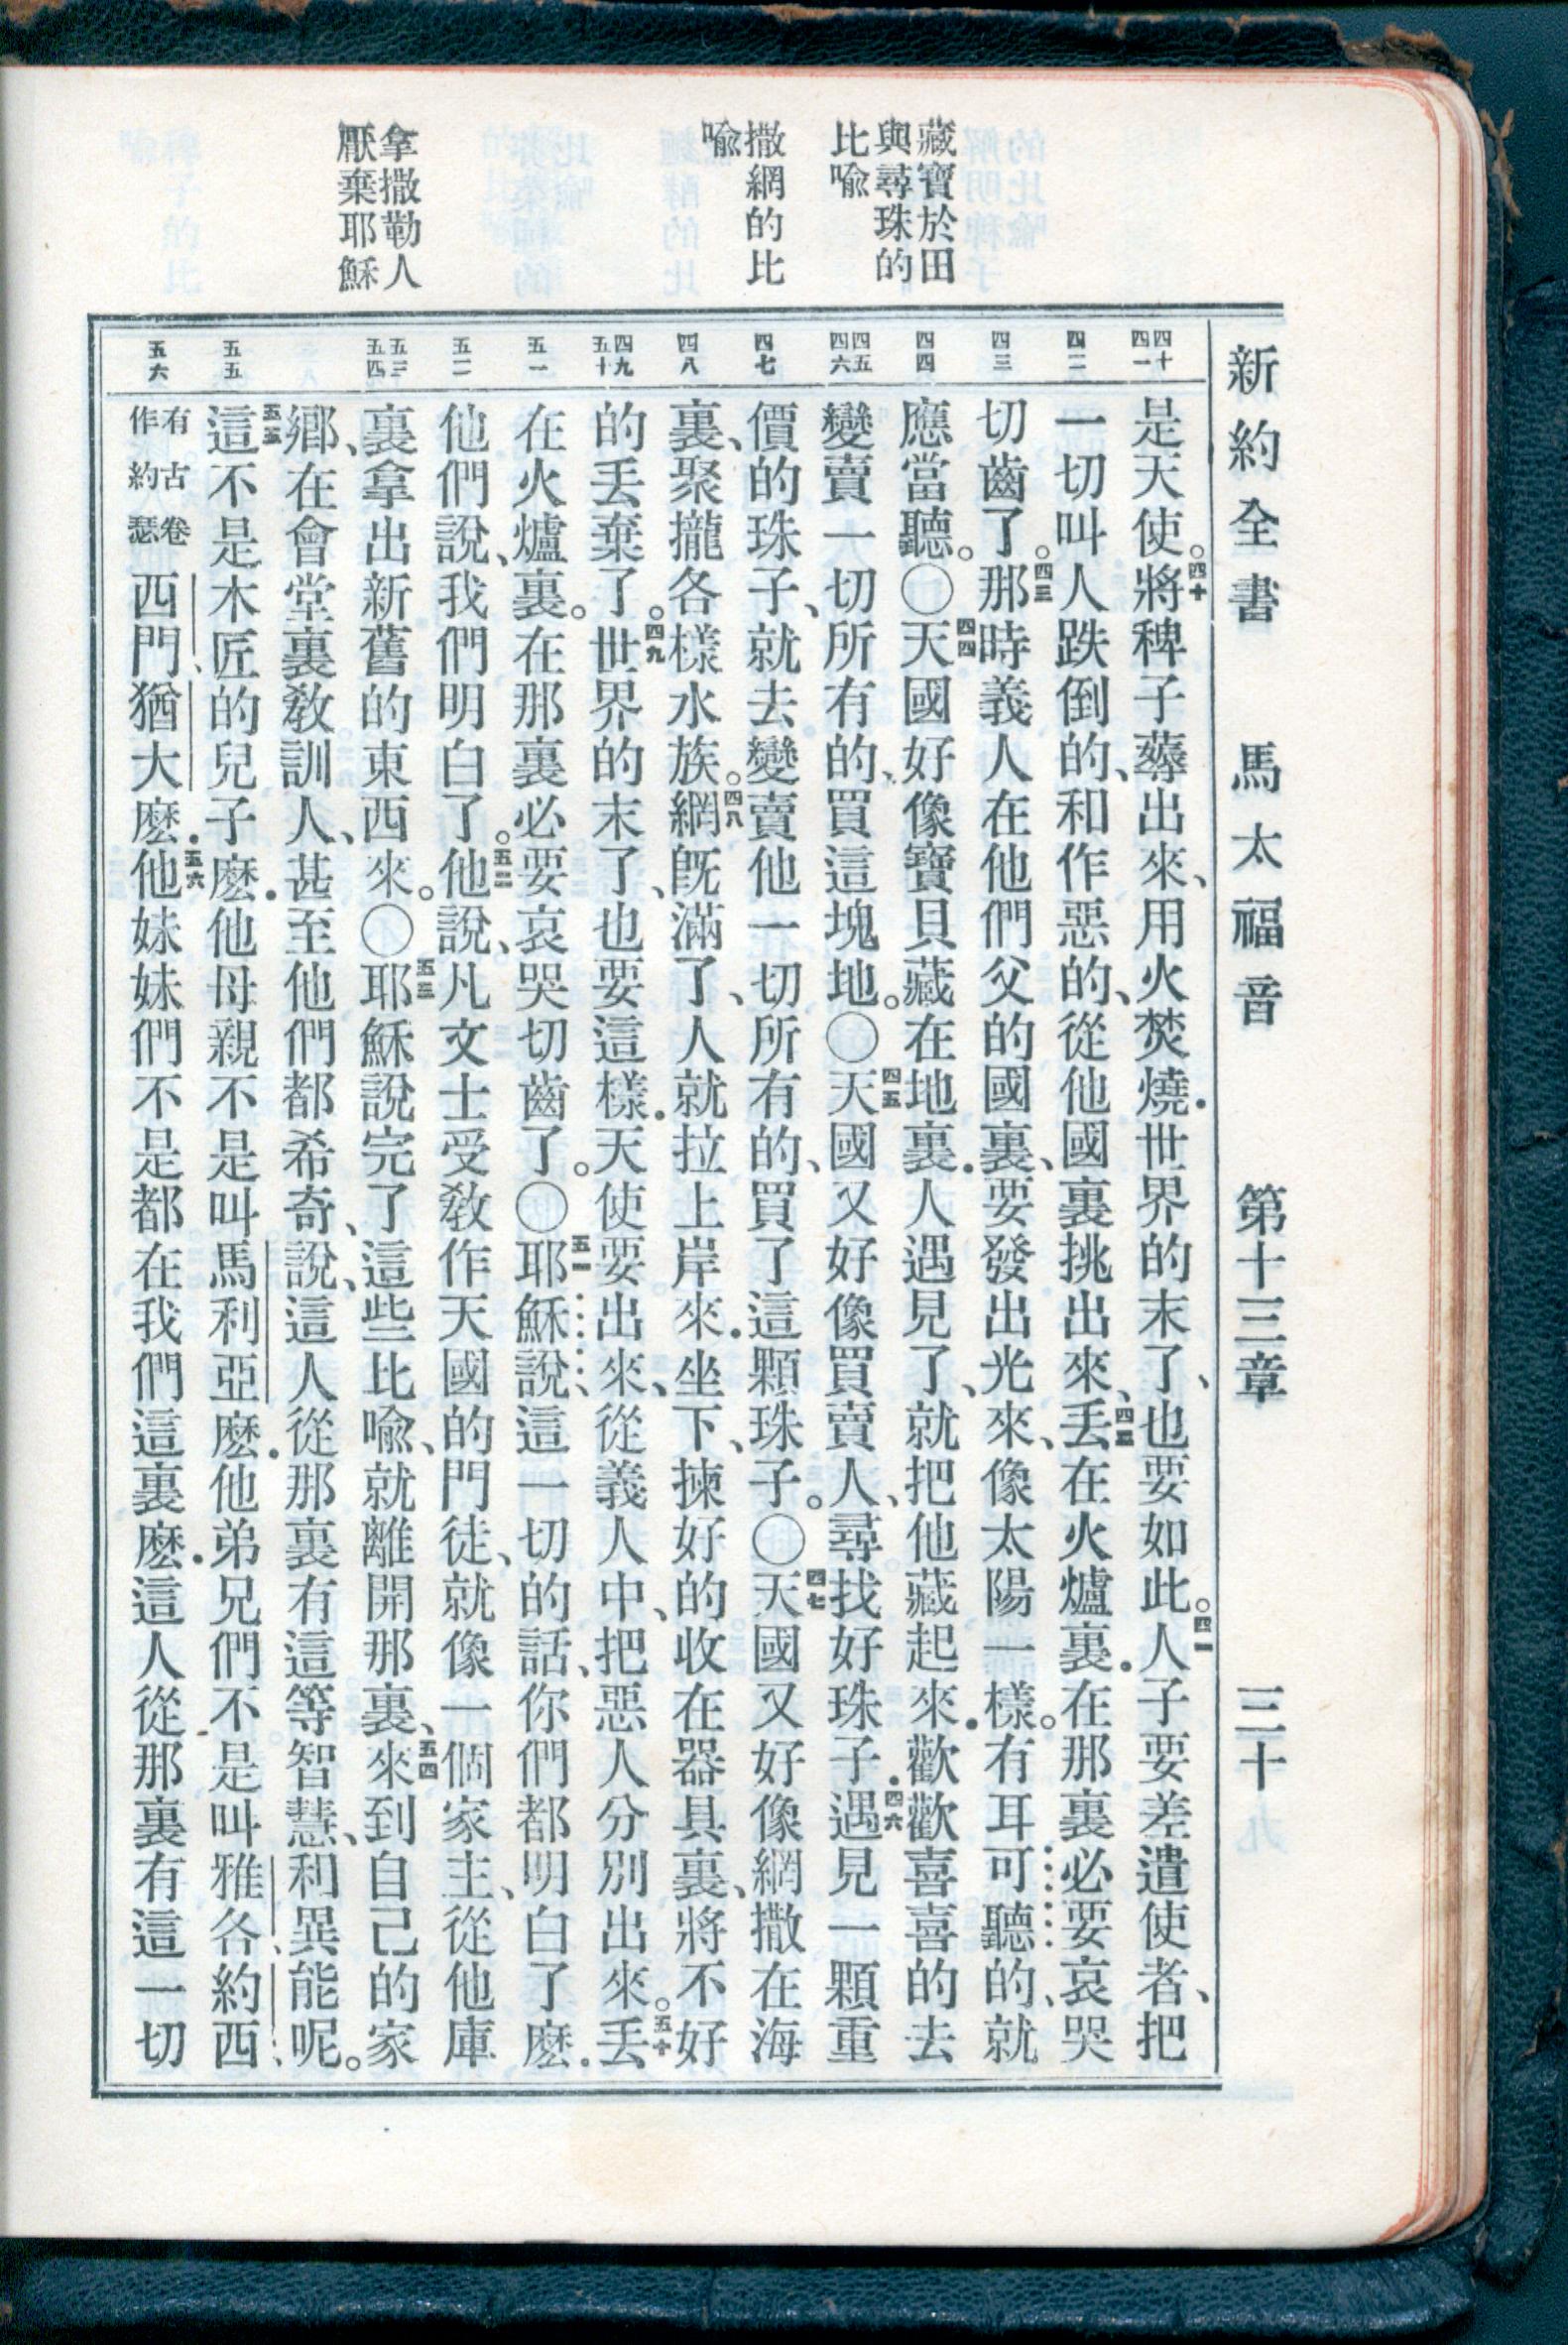 新約全書 馬太福音 第十三章 三十
藏寶於田
與尋珠的
比喻
撒網的比
喻
拿撒勒人
厭棄耶穌
四十 四一 四二 四三 四四 四五 四六 四七 四八 四九 五十 五一 五二 五三 五四 五五 五六
是天使。四十將稗子薅出來、用火焚燒.世界的末了、也要如此。四一人子要差遣使者、把
一切叫人跌倒的、和作惡的、從他國裏挑出來、四二丟在火爐裏.在那裏必要哀哭
切齒了。四三那時義人在他們父的國裏、要發出光來、像太陽一樣。有耳可聽的、就
應當聽。〇四四天國好像寶貝藏在地裏.人遇見了、就把他藏起來.歡歡喜喜的去
變賣一切所有的、買這塊地。〇四五天國又好像買賣人、尋找好珠子.四六遇見一顆重
價的珠子、就去變賣他一切所有的、買了這顆珠子。〇四七天國又好像網撒在海
裏、聚攏各樣水族。四八網旣滿了、人就拉上岸來.坐下、揀好的收在器具裏、將不好
的丟棄了。四九世界的末了、也要這樣.天使要出來、從義人中、把惡人分別出來。五十丟
在火爐裏。在那裏必要哀哭切齒了。〇五一耶穌說、這一切的話、你們都明白了麽.
他們說、我們明白了。五二他說、凡文士受敎作天國的門徒、就像一個家主、從他庫
裏拿出新舊的東西來。〇五三耶穌說完了這些比喻、就離開那裏、五四來到自己的家
鄉、在會堂裏敎訓人、甚至他們都希奇、說、這人從那裏有這等智慧、和異能呢。
五五這不是木匠的兒子麽.他母親不是叫馬利亞麽.他弟兄們不是叫雅各、約西、
有古卷作約瑟西門、猶大麽.五六他妹妹們不是都在我們這裏麽.這人從那裏有這一切